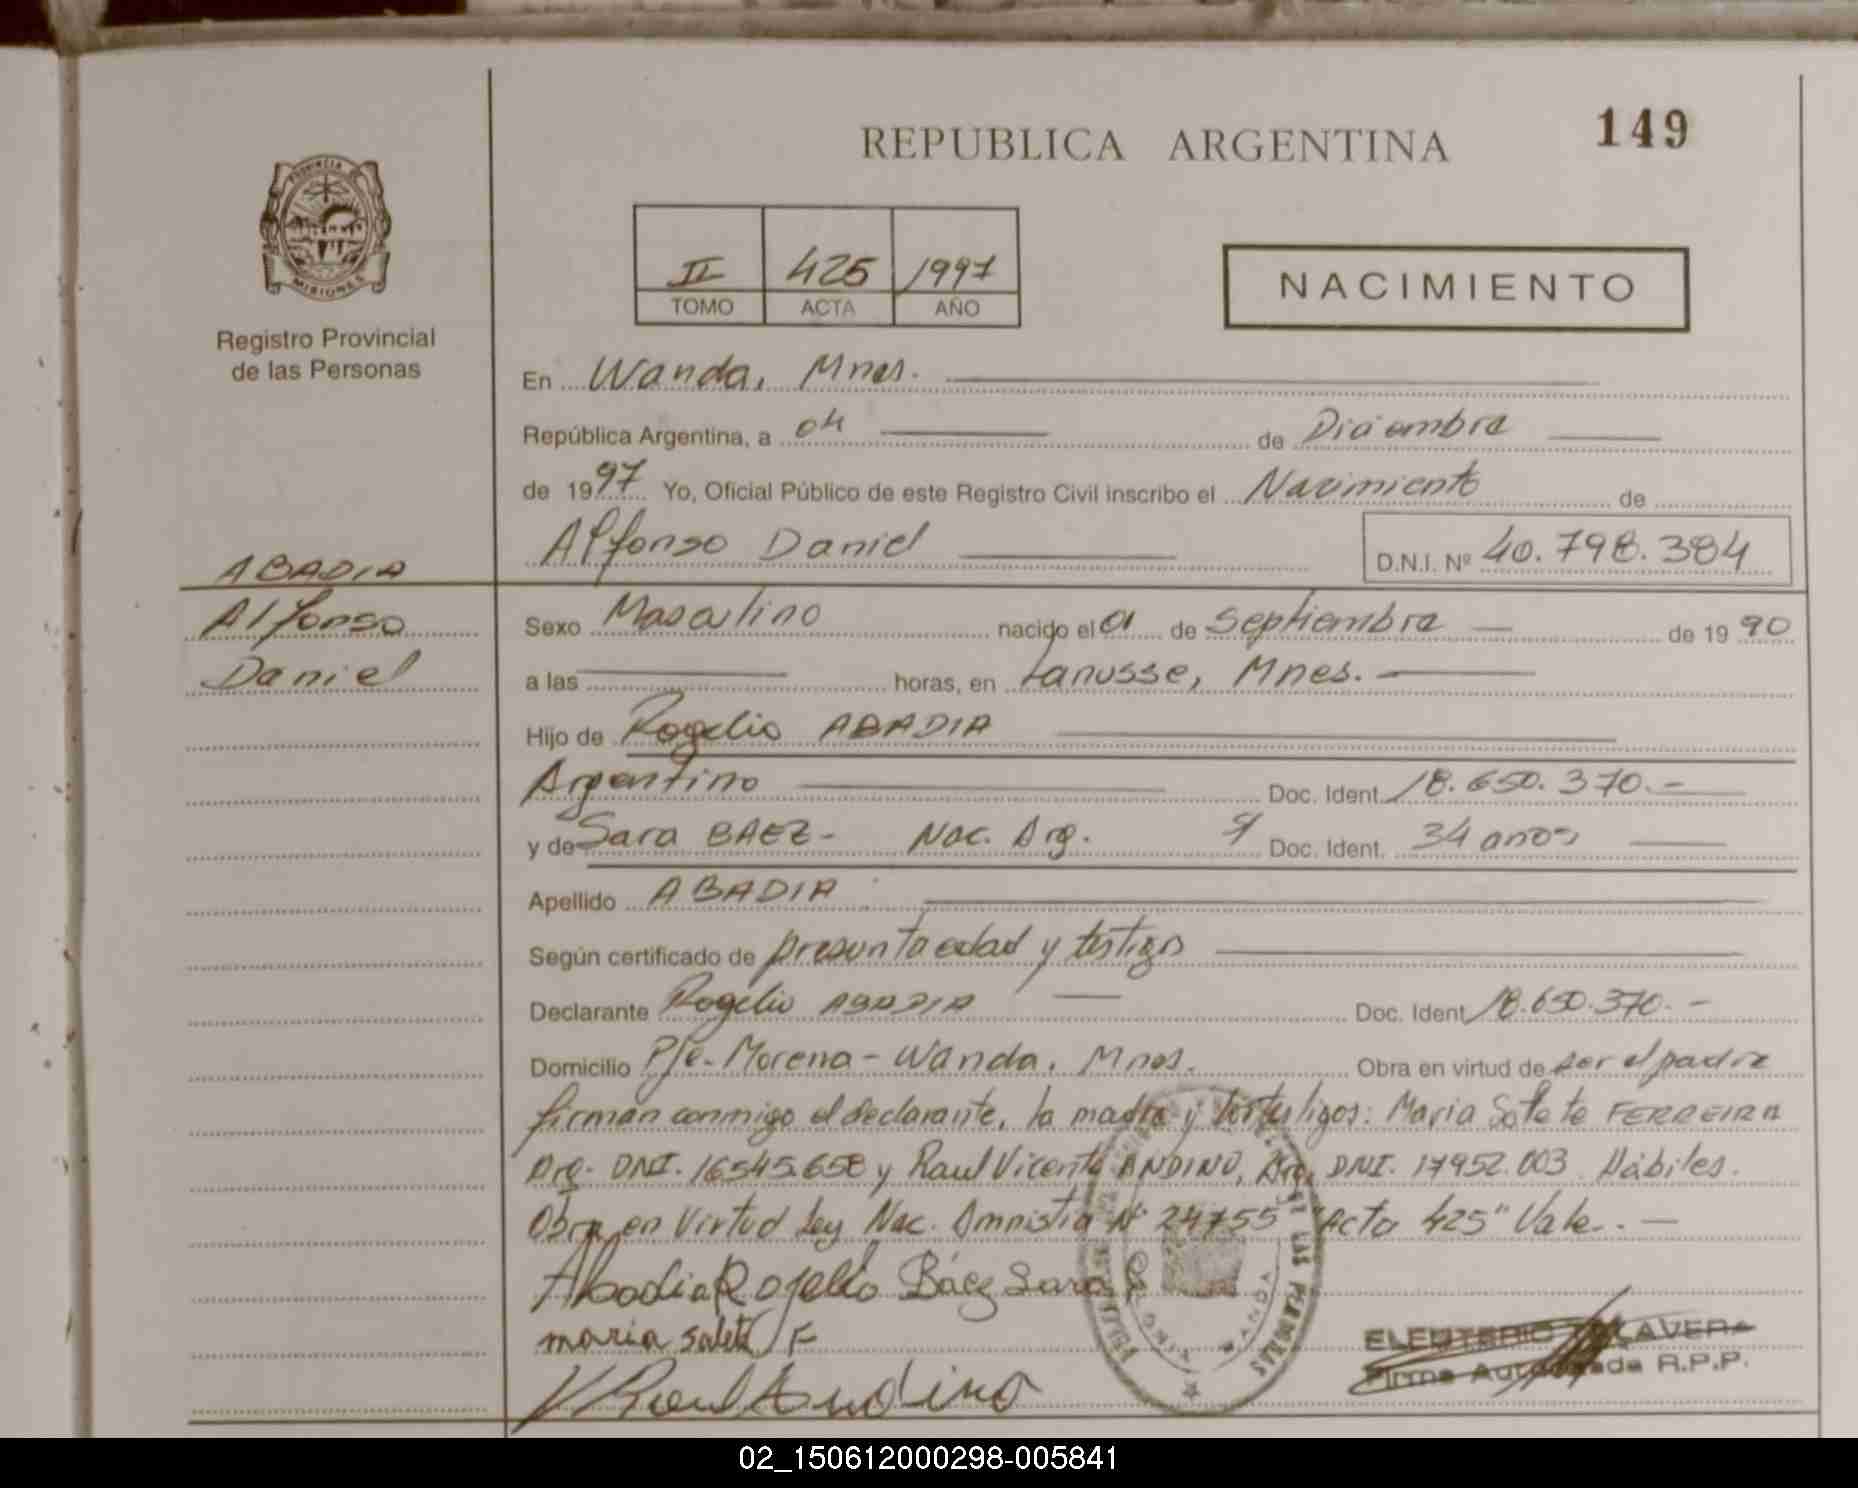 REPUBLICA ARGENTINA
149
PROVINCIA DE
MISIONES
Registro Provincial
de las Personas
II 425 1997
TOMO ACTA AÑO
NACIMIENTO
En Wanda, Mnes.
República Argentina, a 04 de Diciembre
de 1997 Yo, Oficial Público de este Registro Civil inscribo el Nacimiento de
Alfonso Daniel
D.N.I. Nº 40.798.384
ABADIA
Alfonso
Daniel
Sexo Masculino nacido el 01 de Septiembre de 19 90
a las horas, en Lanusse, Mnes.
Hijo de Rogelio ABADIA
Argentino Doc. Ident. 18.650.370.-
y de Sara BAEZ- Nac. Arg. S/ Doc. Ident. 34 anos
Apellido ABADIA
Según certificado de presunta edad y testigos
Declarante Rogelio ABADIA Doc. Ident. 18.650.370.-
Domicilio Pje. Morena - Wanda, Mnes. Obra en virtud de ser el padre
firman conmigo el declarante, la madre y testigos: Maria Salete FERREIRA
Arg. DNI. 16545.658 y Raul Vicente ANDINO, Arg. DNI. 17952.003 Hábiles.
Obra en Virtud Ley Nac. Amnistia Nº 24755 "Acta 425" Vale.-
Abadia Rogelio Báez Sara
maria salete F
Raul Andino
LAS PERSONAS
WANDA
ELEUTERIO TALAVERA
Firma Autorizada R.P.P.
02_150612000298-005841